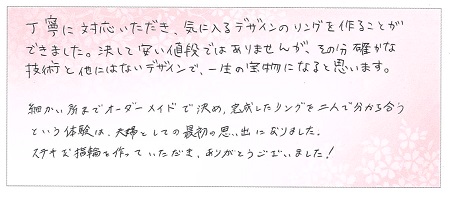 丁寧に対応いただき、気に入るデザインのリングを作ることが
できました。決して安い値段ではありませんが、その分確かな
技術と他にはないデザインで、一生の宝物になると思います。
細かい所までオーダーメイドで決め、完成したリングを二人で分かち合う
という体験は、夫婦としての最初の思い出になりました。
ステキな指輪を作っていただき、ありがとうございました!